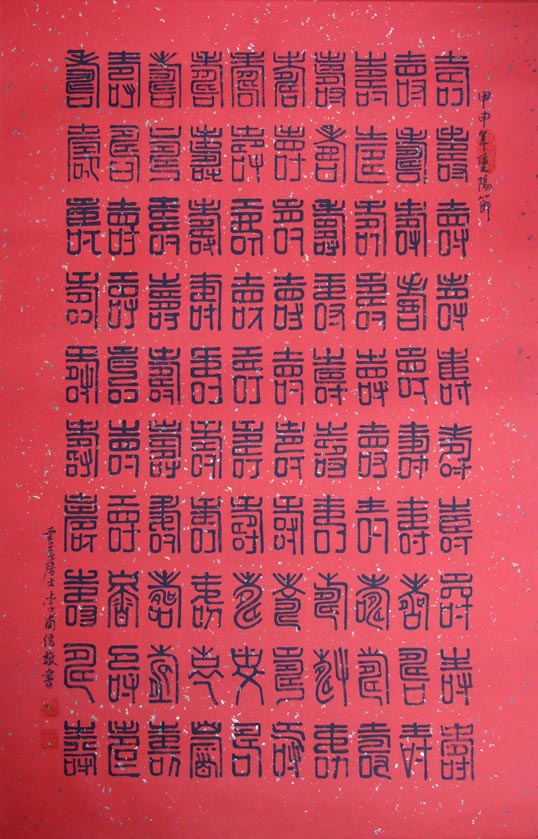 甲申年重陽節
壽壽壽壽壽壽壽壽壽壽
壽壽壽壽壽壽壽壽壽壽
壽壽壽壽壽壽壽壽壽壽
壽壽壽壽壽壽壽壽壽壽
壽壽壽壽壽壽壽壽壽壽
壽壽壽壽壽壽壽壽壽壽
壽壽壽壽壽壽壽壽壽壽
壽壽壽壽壽壽壽壽壽壽
壽壽壽壽壽壽壽壽壽壽
壽壽壽壽壽壽壽壽壽壽
居士李信敬書